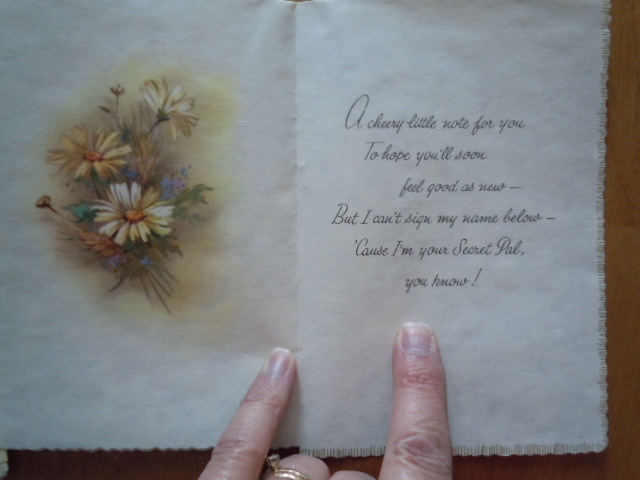 A cheery little note for you
To hope you'll soon
feel good as new –
But I can't sign my name below –
'Cause I'm your Secret Pal,
you know!